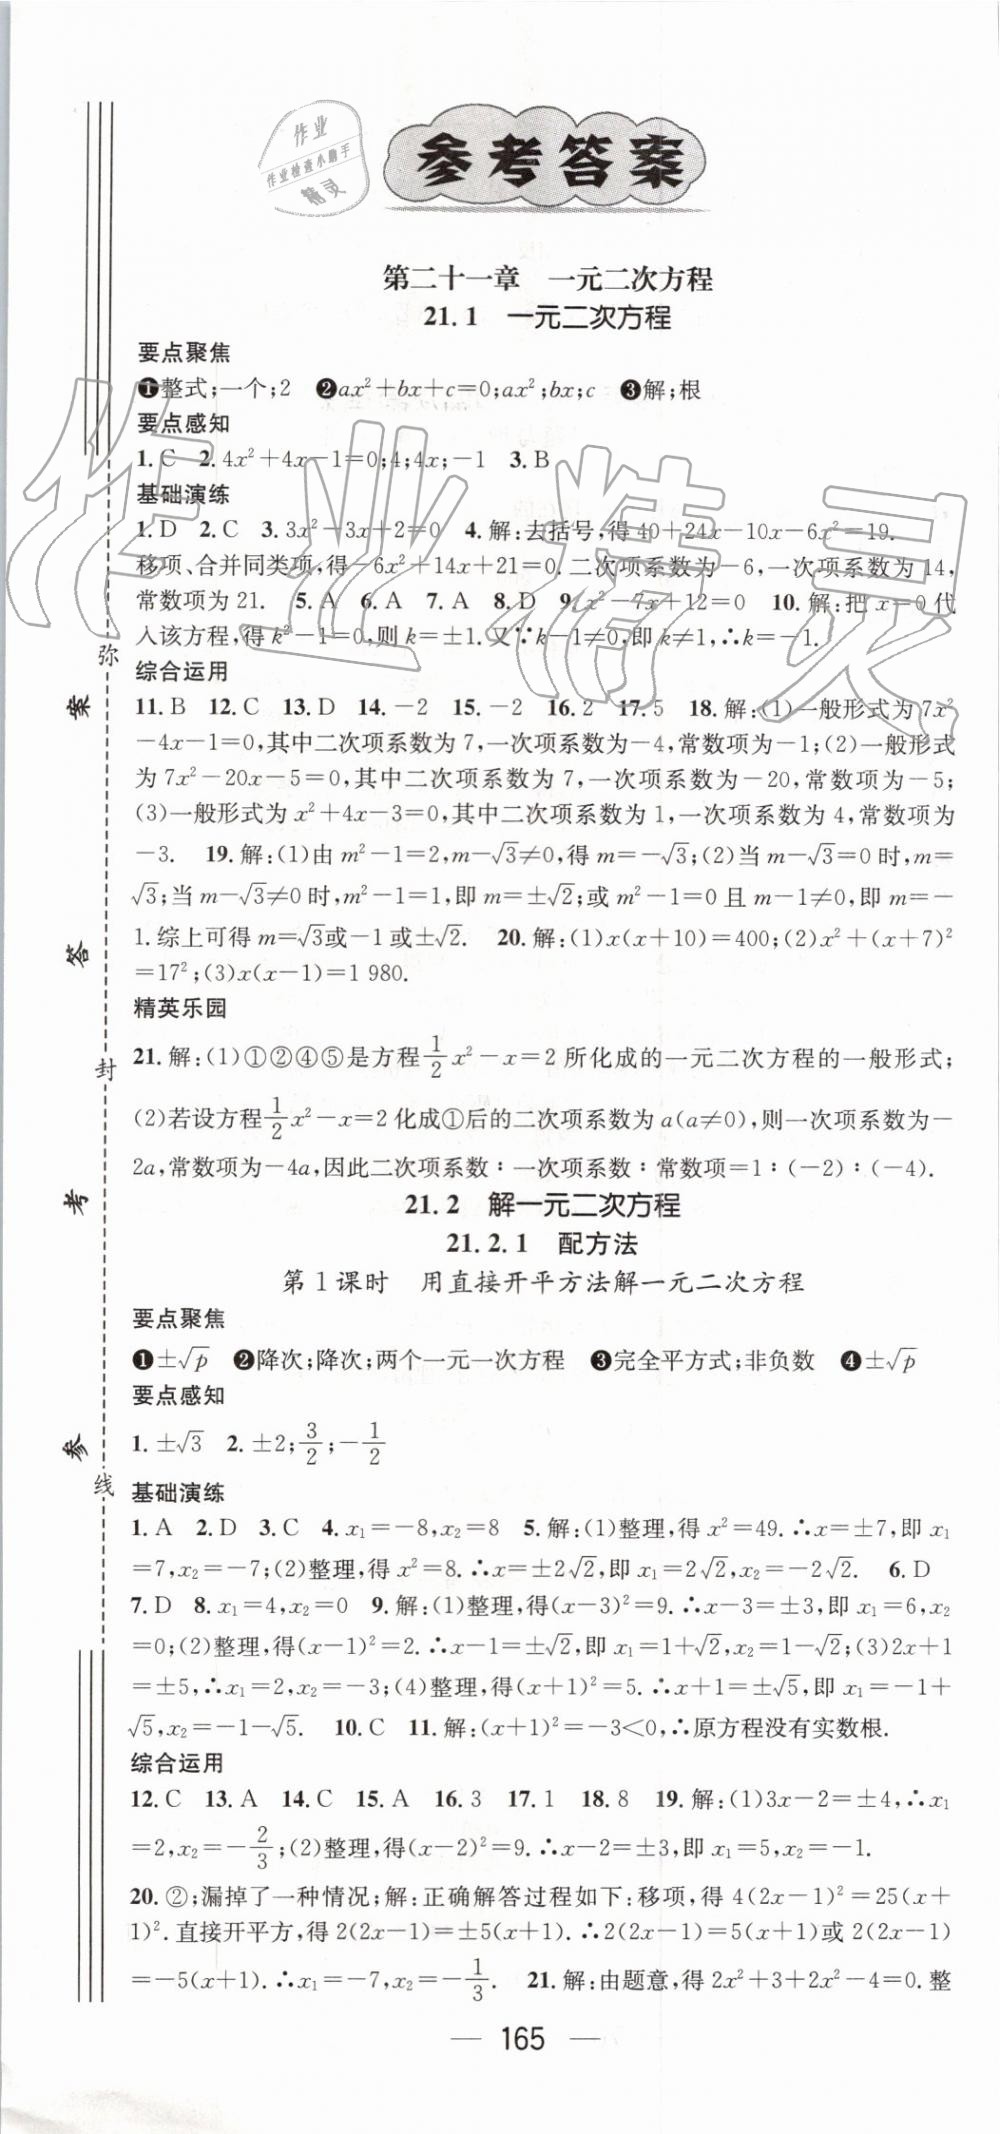 作业
作业检查小助手
精灵
参考答案
第二十一章 一元二次方程
21.1 一元二次方程
要点聚焦
❶整式;一个;2 ❷ax²+bx+c=0;ax²;bx;c ❸解;根
要点感知
1.C 2.4x²+4x-1=0;4;4x;-1 3.B
基础演练
1.D 2.C 3.3x²-3x+2=0 4.解:去括号,得40+24x-10x-6x²=19.
移项、合并同类项,得-6x²+14x+21=0.二次项系数为-6,一次项系数为14,
常数项为21. 5.A 6.A 7.A 8.D 9.x²-7x+12=0 10.解:把x=0代
入该方程,得k²-1=0,则k=±1.又∵k-1≠0,即k≠1,∴k=-1.
综合运用
11.B 12.C 13.D 14.-2 15.-2 16.2 17.5 18.解:(1)一般形式为7x²
-4x-1=0,其中二次项系数为7,一次项系数为-4,常数项为-1;(2)一般形式
为7x²-20x-5=0,其中二次项系数为7,一次项系数为-20,常数项为-5;
(3)一般形式为x²+4x-3=0,其中二次项系数为1,一次项系数为4,常数项为
-3. 19.解:(1)由m²-1=2,m-√3≠0,得m=-√3;(2)当m-√3=0时,m=
√3;当m-√3≠0时,m²-1=1,即m=±√2;或m²-1=0且m-1≠0,即m=-
1.综上可得m=√3或-1或±√2. 20.解:(1)x(x+10)=400;(2)x²+(x+7)²
=17²;(3)x(x-1)=1 980.
精英乐园
21.解:(1)①②④⑤是方程1/2x²-x=2所化成的一元二次方程的一般形式;
(2)若设方程1/2x²-x=2化成①后的二次项系数为a(a≠0),则一次项系数为-
2a,常数项为-4a,因此二次项系数∶一次项系数∶常数项=1∶(-2)∶(-4).
21.2 解一元二次方程
21.2.1 配方法
第1课时 用直接开平方法解一元二次方程
要点聚焦
❶±√p ❷降次;降次;两个一元一次方程 ❸完全平方式;非负数 ❹±√p
要点感知
1.±√3 2.±2;3/2;-1/2
基础演练
1.A 2.D 3.C 4.x₁=-8,x₂=8 5.解:(1)整理,得x²=49.∴x=±7,即x₁
=7,x₂=-7;(2)整理,得x²=8.∴x=±2√2,即x₁=2√2,x₂=-2√2. 6.D
7.D 8.x₁=4,x₂=0 9.解:(1)整理,得(x-3)²=9.∴x-3=±3,即x₁=6,x₂
=0;(2)整理,得(x-1)²=2.∴x-1=±√2,即x₁=1+√2,x₂=1-√2;(3)2x+1
=±5,∴x₁=2,x₂=-3;(4)整理,得(x+1)²=5.∴x+1=±√5,即x₁=-1+
√5,x₂=-1-√5. 10.C 11.解:(x+1)²=-3<0,∴原方程没有实数根.
综合运用
12.C 13.A 14.C 15.A 16.3 17.1 18.8 19.解:(1)3x-2=±4,∴x₁
=2,x₂=-2/3;(2)整理,得(x-2)²=9.∴x-2=±3,即x₁=5,x₂=-1.
20.②;漏掉了一种情况;解:正确解答过程如下:移项,得4(2x-1)²=25(x+
1)².直接开平方,得2(2x-1)=±5(x+1).∴2(2x-1)=5(x+1)或2(2x-1)
=-5(x+1).∴x₁=-7,x₂=-1/3. 21.解:由题意,得2x²+3+2x²-4=0.整
165
弥
封
线
案
答
考
参
作业精灵